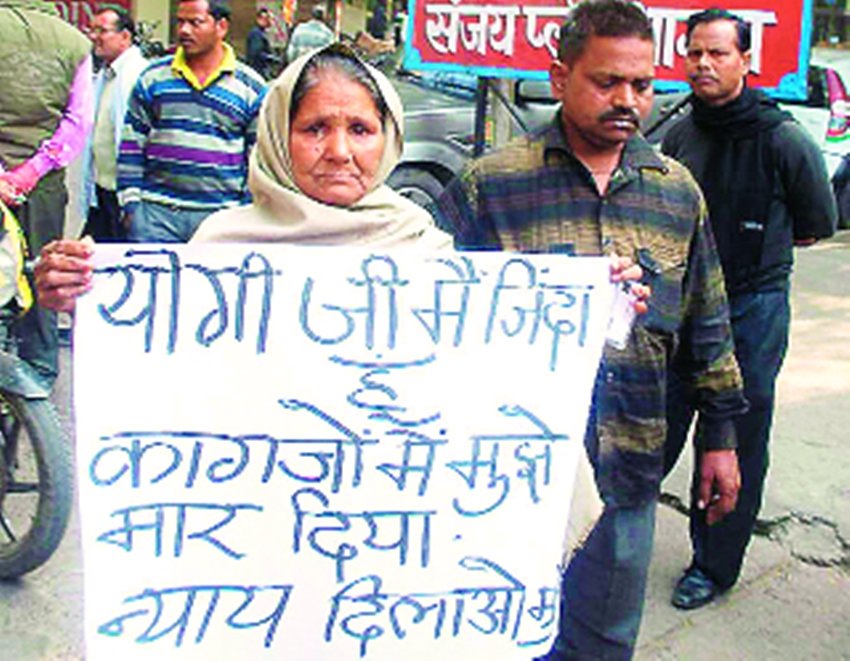 संजय प्
योगी जी मैं जिंदा
हूं
कागजों में मुझे
मार दिया.
न्याय दिलाओ मु